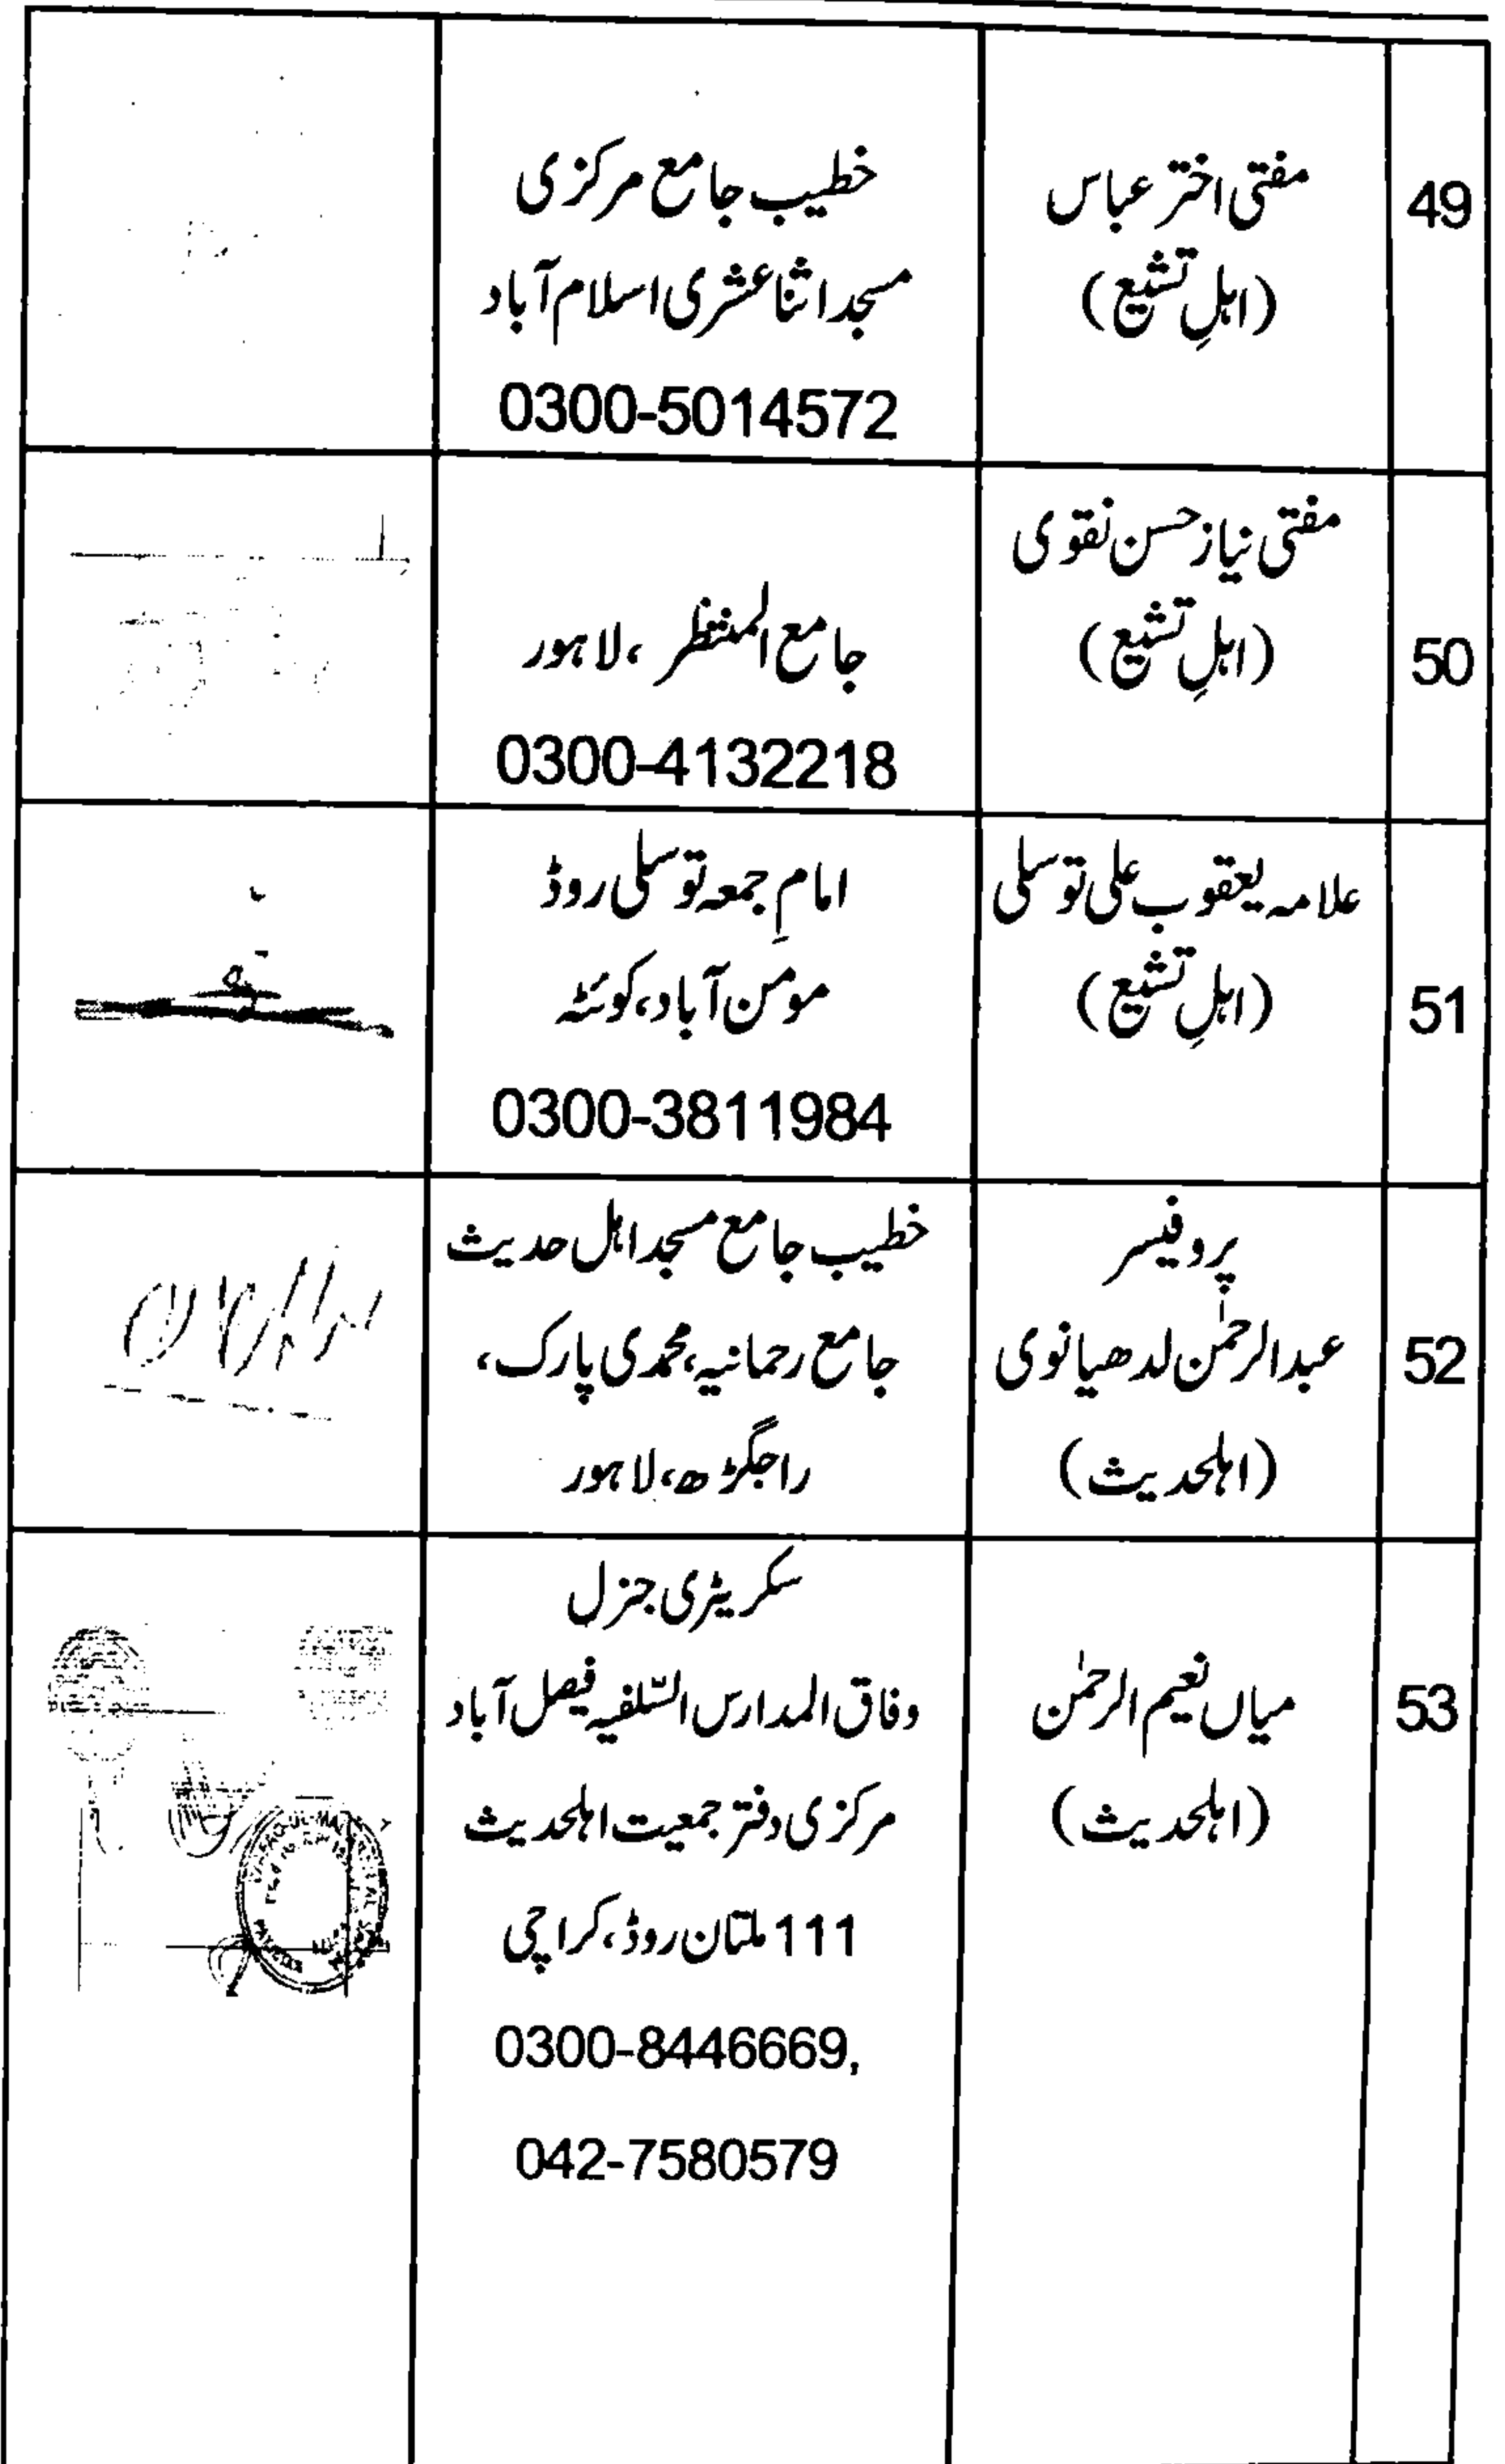 49
مفتی اختر عباس
(اہلِ تشیع)
خطیب جامع مرکزی
مسجد اثنا عشری اسلام آباد
0300-5014572
50
مفتی نیاز حسن نقوی
(اہلِ تشیع)
جامع المنتظر ،لاہور
0300-4132218
51
علامہ یعقوب علی توسلی
(اہلِ تشیع)
امامِ جمعہ توسلی روڈ
مومن آباد،کوئٹہ
0300-3811984
52
پروفیسر
عبدالرحمٰن لدھیانوی
(اہلحدیث)
خطیب جامع مسجد اہل حدیث
جامع رحمانیہ،محمدی پارک،
راجگڑھ،لاہور
53
میاں نعیم الرحمٰن
(اہلحدیث)
سکریٹری جنرل
وفاق المدارس السّلفیہ فیصل آباد
مرکزی دفتر جمعیت اہلحدیث
111 ملتان روڈ،کراچی
0300-8446669,
042-7580579